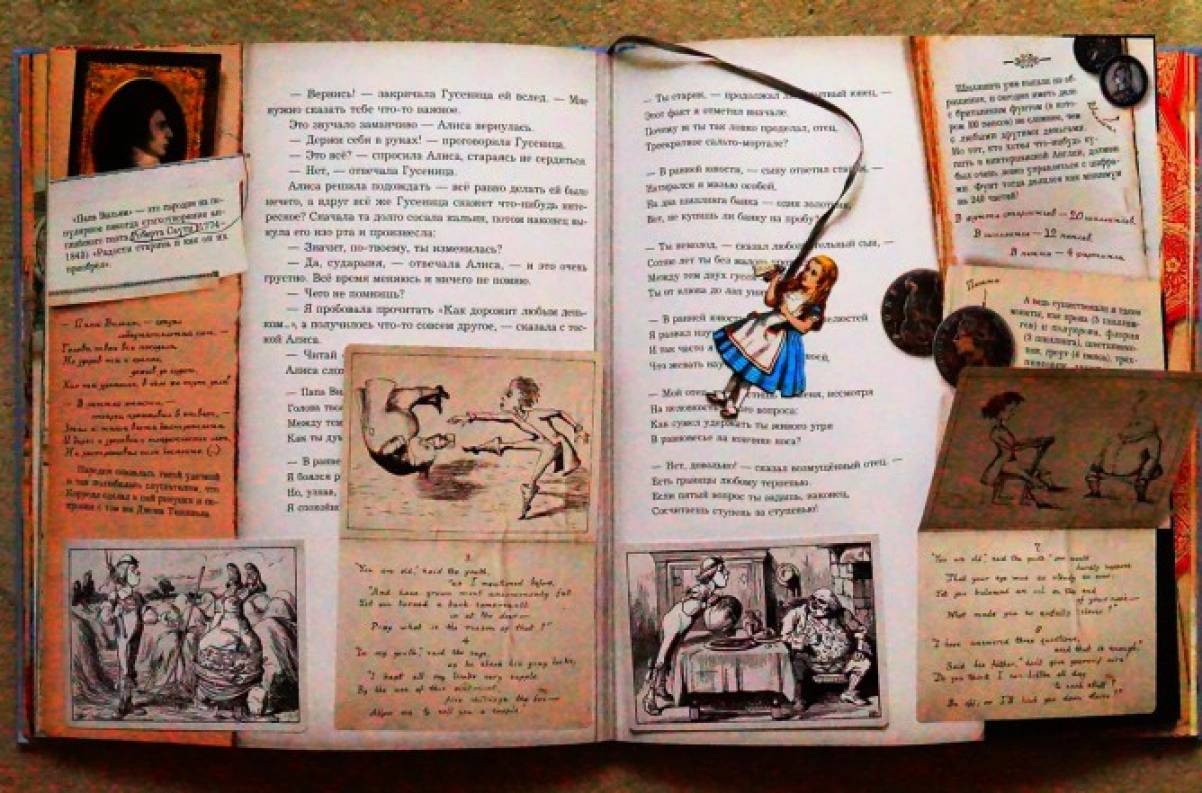 — Вернись! — закричала Гусеница ей вслед. — Мне
нужно сказать тебе что-то важное.
Это звучало заманчиво — Алиса вернулась.
— Держи себя в руках! — проговорила Гусеница.
— Это всё? — спросила Алиса, стараясь не сердиться.
— Нет, — отвечала Гусеница.
Алиса решила подождать — всё равно делать ей было
ничего, а вдруг всё же Гусеница скажет что-нибудь инте-
ресное? Сначала та долго сосала кальян, потом наконец вы-
нула его изо рта и произнесла:
— Значит, по-твоему, ты изменилась?
— Да, сударыня, — отвечала Алиса, — и это очень
грустно. Всё время меняюсь и ничего не помню.
— Чего не помнишь?
— Я пробовала прочитать «Как дорожит любым день-
ком...», а получилось что-то совсем другое, — сказала с тос-
кой Алиса.
— Читай
Алиса сло
— Папа Ви
Голова тво
Между тем
Как ты ду
— В ранне
Я боялся р
Но, узнав,
Я спокойн
«Папа Вильям» — это пародия на по-
пулярное некогда стихотворение ан-
глийского поэта Роберта Саути (1774–
1843) «Радости старика и как он их
приобрёл».
— Папа Вильям, — 
Голова твоя вся поседела,
— В ранней юности, —
Пародия оказалась такой удачной
и так полюбилась слушателям, что
Кэрролл сделал к ней рисунки и по-
3
"You are old," said the youth,
"as I mentioned before,
And have grown most uncommonly fat:
Yet you turned a back somersault
in at the door —
Pray what is the reason of that?"
4
"In my youth," said the sage,
as he shook his gray locks,
"I kept all my limbs very supple
By the use of this ointment,
five shillings the box —
Allow me to sell you a couple."
— Ты старик, — продолжал юнец, —
Этот факт я отметил вначале.
Почему ж ты так ловко проделал, отец,
Троекратное сальто-мортале?
— В ранней юности, — сыну ответил старик, —
Натирался я мазью особой,
На два шиллинга банка — один золотник,
Вот, не купишь ли банку на пробу?
— Ты немолод, — сказал любознательный сын, —
Сотню лет ты без малого
Между тем двух гусей
Ты от клюва до лап
— В ранней юности
Я развил
И так часто я
Что жевать
— Мой отец, несмотря
На неловкость вопроса:
Как сумел удержать ты живого угря
В равновесье на кончике носа?
— Нет, довольно! — сказал возмущённый отец. —
Есть границы любому терпенью.
Если пятый вопрос ты задашь, наконец,
Сосчитаешь ступень за ступенью!
Шиллинги уже вышли из об-
ращения, и сегодня иметь дело
с британским фунтом (в кото-
ром 100 пенсов) не сложнее, чем
с любыми другими деньгами.
Но тот, кто хотел что-нибудь ку-
пить в викторианской Англии, должен
был очень ловко управляться с цифра-
ми. Фунт тогда делился как минимум
на 240 частей!
В фунте стерлингов — 20 шиллингов
В шиллинге — 12 пенсов
В пенни — 4 фартинга
Пенни
А ведь существовали и такие
монеты, как крона (5 шиллин-
гов) и полукрона, флорин
(2 шиллинга), шестипенни-
7
"You are old," said the youth, "one would
hardly suppose
That your eye was as steady as ever:
Yet you balanced an eel on the end
of your nose —
What made you so awfully clever?"
8
"I have answered three questions,
and that is enough,"
Said his father, "don't give yourself airs!
Do you think I can listen all day
to such stuff?
Be off, or I'll kick you down stairs!"